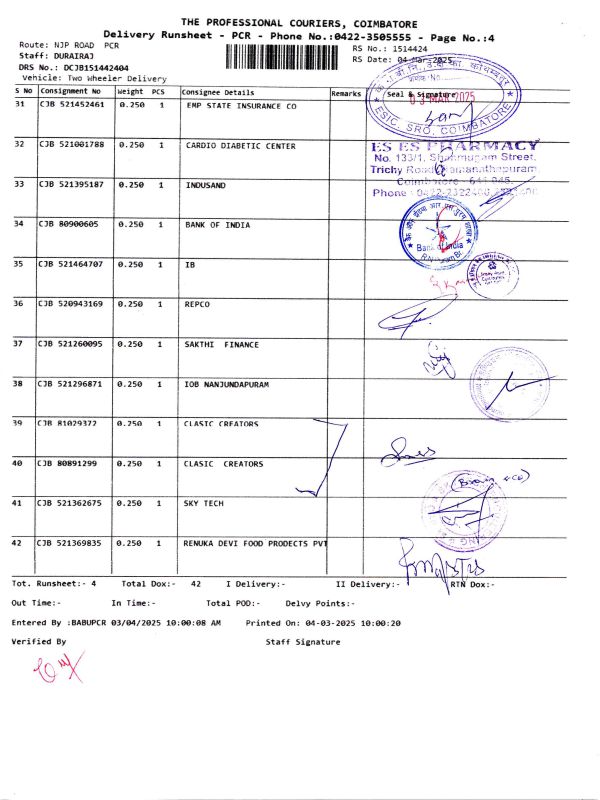 THE PROFESSIONAL COURIERS, COIMBATORE
Delivery Runsheet - PCR - Phone No.:0422-3505555 - Page No.:4
Route: NJP ROAD PCR RS No.: 1514424
Staff: DURAIRAJ RS Date: 04-Mar-2025
DRS No.: DCJB151442404
Vehicle: Two Wheeler Delivery
S No Consignment No Weight PCS Consignee Details Remarks Seal & Signature
31 CJB 521452461 0.250 1 EMP STATE INSURANCE CO
03 MAR 2025
ESIC, SRO, COIMBATORE
32 CJB 521001788 0.250 1 CARDIO DIABETIC CENTER
ES ES PHARMACY
No. 133/1, Shanmugam Street,
Trichy Road, Ramanathapuram,
Coimbatore - 641 045.
Phone : 0422-2322400,
33 CJB 521395187 0.250 1 INDUSAND
34 CJB 80900605 0.250 1 BANK OF INDIA
Bank of India
35 CJB 521464707 0.250 1 IB
36 CJB 520943169 0.250 1 REPCO
37 CJB 521260095 0.250 1 SAKTHI FINANCE
38 CJB 521296871 0.250 1 IOB NANJUNDAPURAM
39 CJB 81029372 0.250 1 CLASIC CREATORS
40 CJB 80891299 0.250 1 CLASIC CREATORS
41 CJB 521362675 0.250 1 SKY TECH
42 CJB 521369835 0.250 1 RENUKA DEVI FOOD PRODECTS PVT
Tot. Runsheet:- 4 Total Dox:- 42 I Delivery:- II Delivery:- RTN Dox:-
Out Time:- In Time:- Total POD:- Delvy Points:-
Entered By :BABUPCR 03/04/2025 10:00:08 AM Printed On: 04-03-2025 10:00:20
Verified By Staff Signature